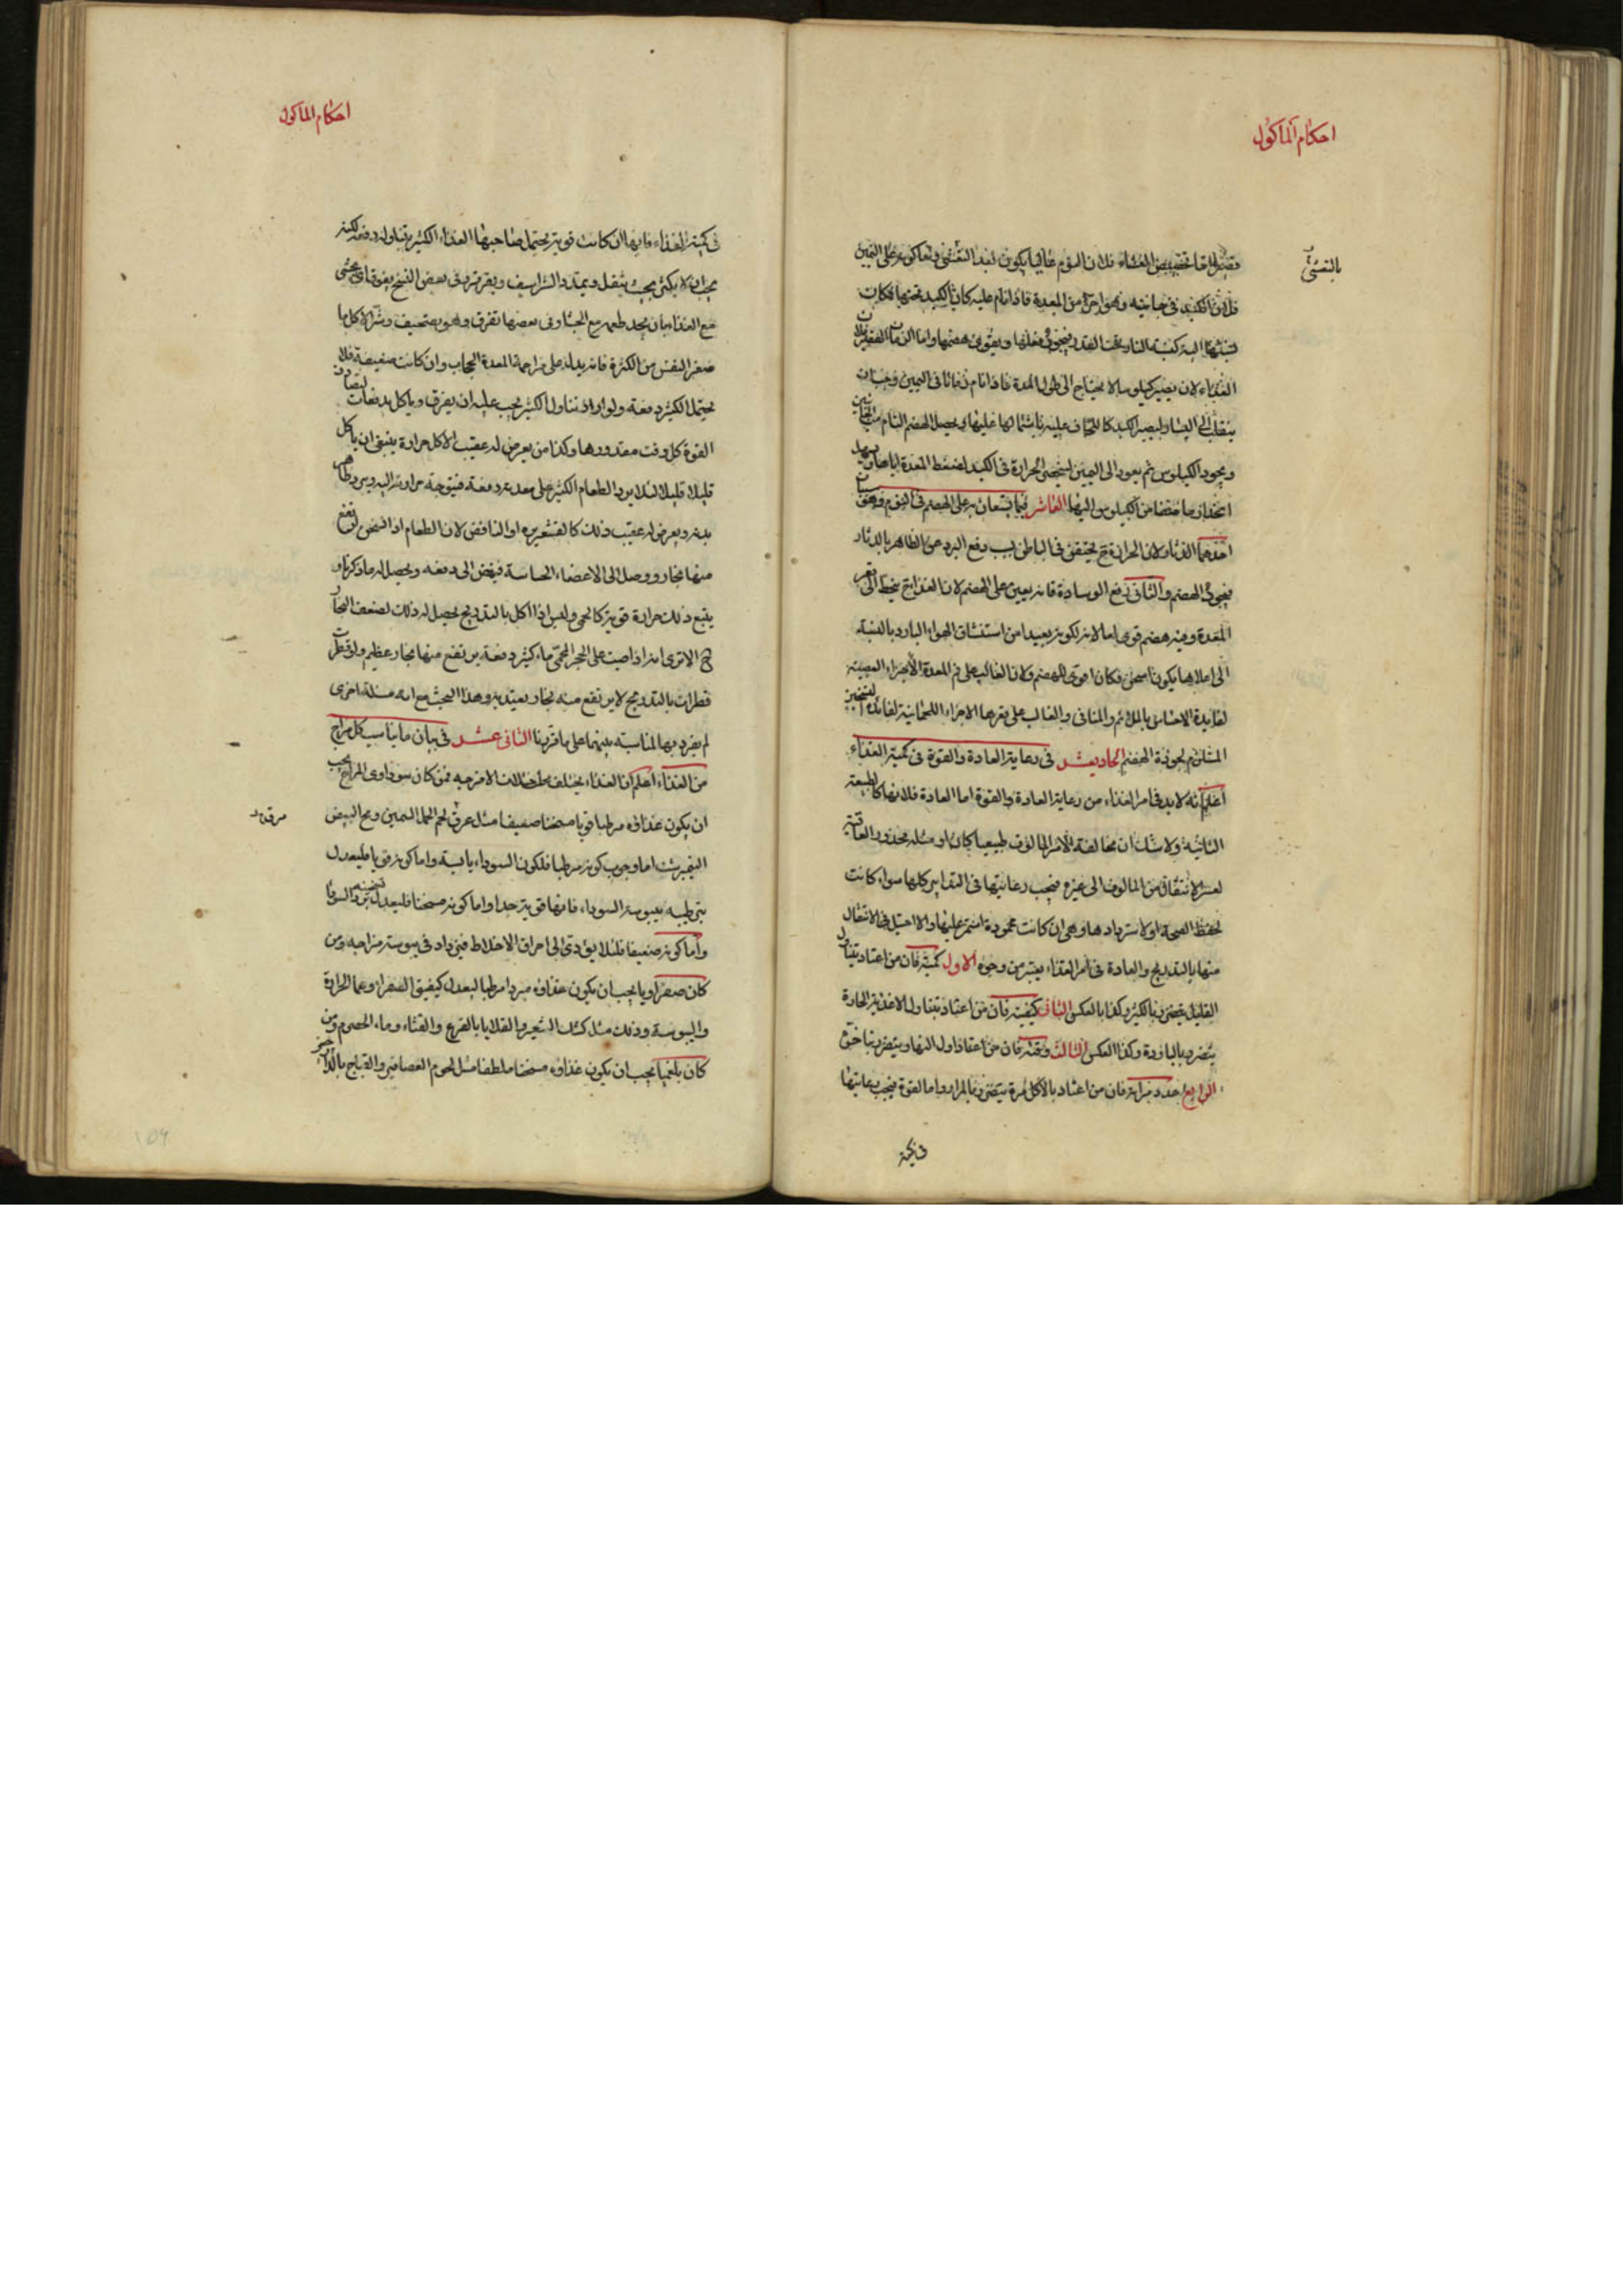 احكام المأكول
بالتعشى
فلان الكبد فى جانبه وهو احر من المعدة فاذا نام عليه كان الكبد تحتها فكان
نسبتها اليه كنسبة النار تحت القدر فيجود فعلها ويقوى هضمها واما الزمان القصير فلان
الغذاء لان يصير كيلوسا لا يحتاج الى طول المدة فاذا نام زمانا فى اليمين وجب ان
ينقلب الى اليسار ليصير الكبد كاللحاف عليه باشتمالها عليها ويحصل الهضم التام من الجانبين
ويجود الكيلوس ثم يعود الى اليمين ليتحصى الحرارة فى الكبد لضغط المعدة اياها ويسهل
انحدار ما فضا من الكيلوس اليها العاشر فيما يستعان به على الهضم فى النوم وهو شيئان
احدهما الدثار لان الحرارة ح يحتقن فى الباطن بسبب دفع البرد عن الظاهر بالدثار
فيجود الهضم والثانى رفع الوسادة فانه يعين على الهضم لان الغذاء ح ينحط الى قعر
المعدة وفيه هضم قوى اما لانه لكونه بعيدا من استنشاق الهواء البارد بالنسبة
الى اعلاها يكون اسخن فكان اقوى للهضم ولان الغالب على فم المعدة الاجزاء العصبية
لفايدة الاحساس بالملائم والمنافى والغالب على قعرها الاجزاء اللحمانية لفائدة التسخين
المستلزم لجودة الهضم الحادى عشر فى رعاية العادة والقوة فى كمية الغذاء
اعلم انه لابد فى امر الغذاء من رعاية العادة والقوة اما العادة فلانها كالطبيعة
الثانية ولا شك ان مخالفة الامر المالوف طبيعيا كان او مثله محذور العاقبة
لعسر الانتقال من المالوف الى غيره فيجب رعايتها فى التدابير كلها سواء كانت
لحفظ الصحة او لاسترداد ها وهى ان كانت محمودة استمر عليها والا احتيل فى الانتقال
منها بالتدريج والعادة فى امر الغذاء يعتبر من وجوه الاول كميته فان من اعتاد بتناول
القليل يتضرر بالكثير وكذا بالعكس الثانى كيفيته فان من اعتاد بتناول الاغذية الحارة
يتضرر بالباردة وكذا العكس الثالث وقته فان من اعتاد اول النهار يتضرر بتاخره
الرابع عدد مراته فان من اعتاد بالاكل مرة يتضرر بالمرار واما القوة فيجب رعايتها
فى كمية
احكام الماكول
فى كمية الغذاء فانها ان كانت قوية يحتمل صاحبها الغذاء الكثير بتناوله دفعة لكنه
يجب ان لا يكثر بحيث يثقل ويمدد الشراسيف ويقرقر وفى بعض النسخ يفوق اى يتجشى
مع الغذاء بان يجد طعمه مع الجشا وفى بعضها تقرق وهو تصحيف وشر الاكل ما
صغر النفس من الكثرة فانه يدل على مزاحمة المعدة الحجاب وان كانت ضعيفة فلا
يحتمل الكثير دفعة ولو اراد تناول الكثير يجب عليه ان يفرق وياكل بدفعات لتصادف
القوة كل وقت مقدورها وكذا من يعرض له عقيب الاكل حرارة ينبغى ان ياكل
قليلا قليلا لئلا يرد الطعام الكثير على معدته دفعة فيتوجه حرارته اليه ويبرد ظاهر
بدنه ويعرض له عقيب ذلك كالقشعريره او النافض لان الطعام اذا تسخن ارتفع
منها بخار ووصل الى الاعضاء الحساسة فيفض الى دفعه ويحصل له ما ذكرنا و
يتبع ذلك حرارة قوية كالحمى وليس اذا اكل بالتدريج يحصل له ذلك لضعف البخار
ح الا ترى انه اذا صبت على الحجر المحمى ماء كثير دفعة يرتفع منها بخار عظيم ولو قطرت
قطرات بالتدريج لا يرتفع منه بخار يعتد به وهذا البحث مع انه مسئلة اخرى
لم يفرد بها لمناسبته بينهما على ما قررنا الثانى عشر فى بيان ما يناسب كل مزاج
من الغذاء اعلم ان الغذاء يختلف بحسب اختلاف الامزجه فمن كان سوداوى المزاج يجب
ان يكون غذاؤه مرطبا قويا مسخنا ضعيفا مثل مرق لحم الحمل السمين ومح البيض
النيمبرشت اما وجوب كونه مرطبا فلكون السوداء يابسة واما كونه قويا فليعدل
بترطيبه يبوسة السوداء فانها قوية جدا واما كونه مسخنا فليعدل تسخينه برد السوداء
واما كونه ضعيفا فلئلا يؤدى الى احراق الاخلاط فيزداد فى يبوسة مزاجه ومن
كان صفراويا يجب ان يكون غذاؤه مبردا مرطبا ليعدل كيفيتى الصفراء وهما الحرارة
واليبوسة وذلك مثل كشك الشعير والقلايا بالقرع والقثاء وماء الحصرم ومن
كان بلغميا يجب ان يكون غذاؤه مسخنا ملطفا مثل لحوم العصافير والقباج بالدارچينى